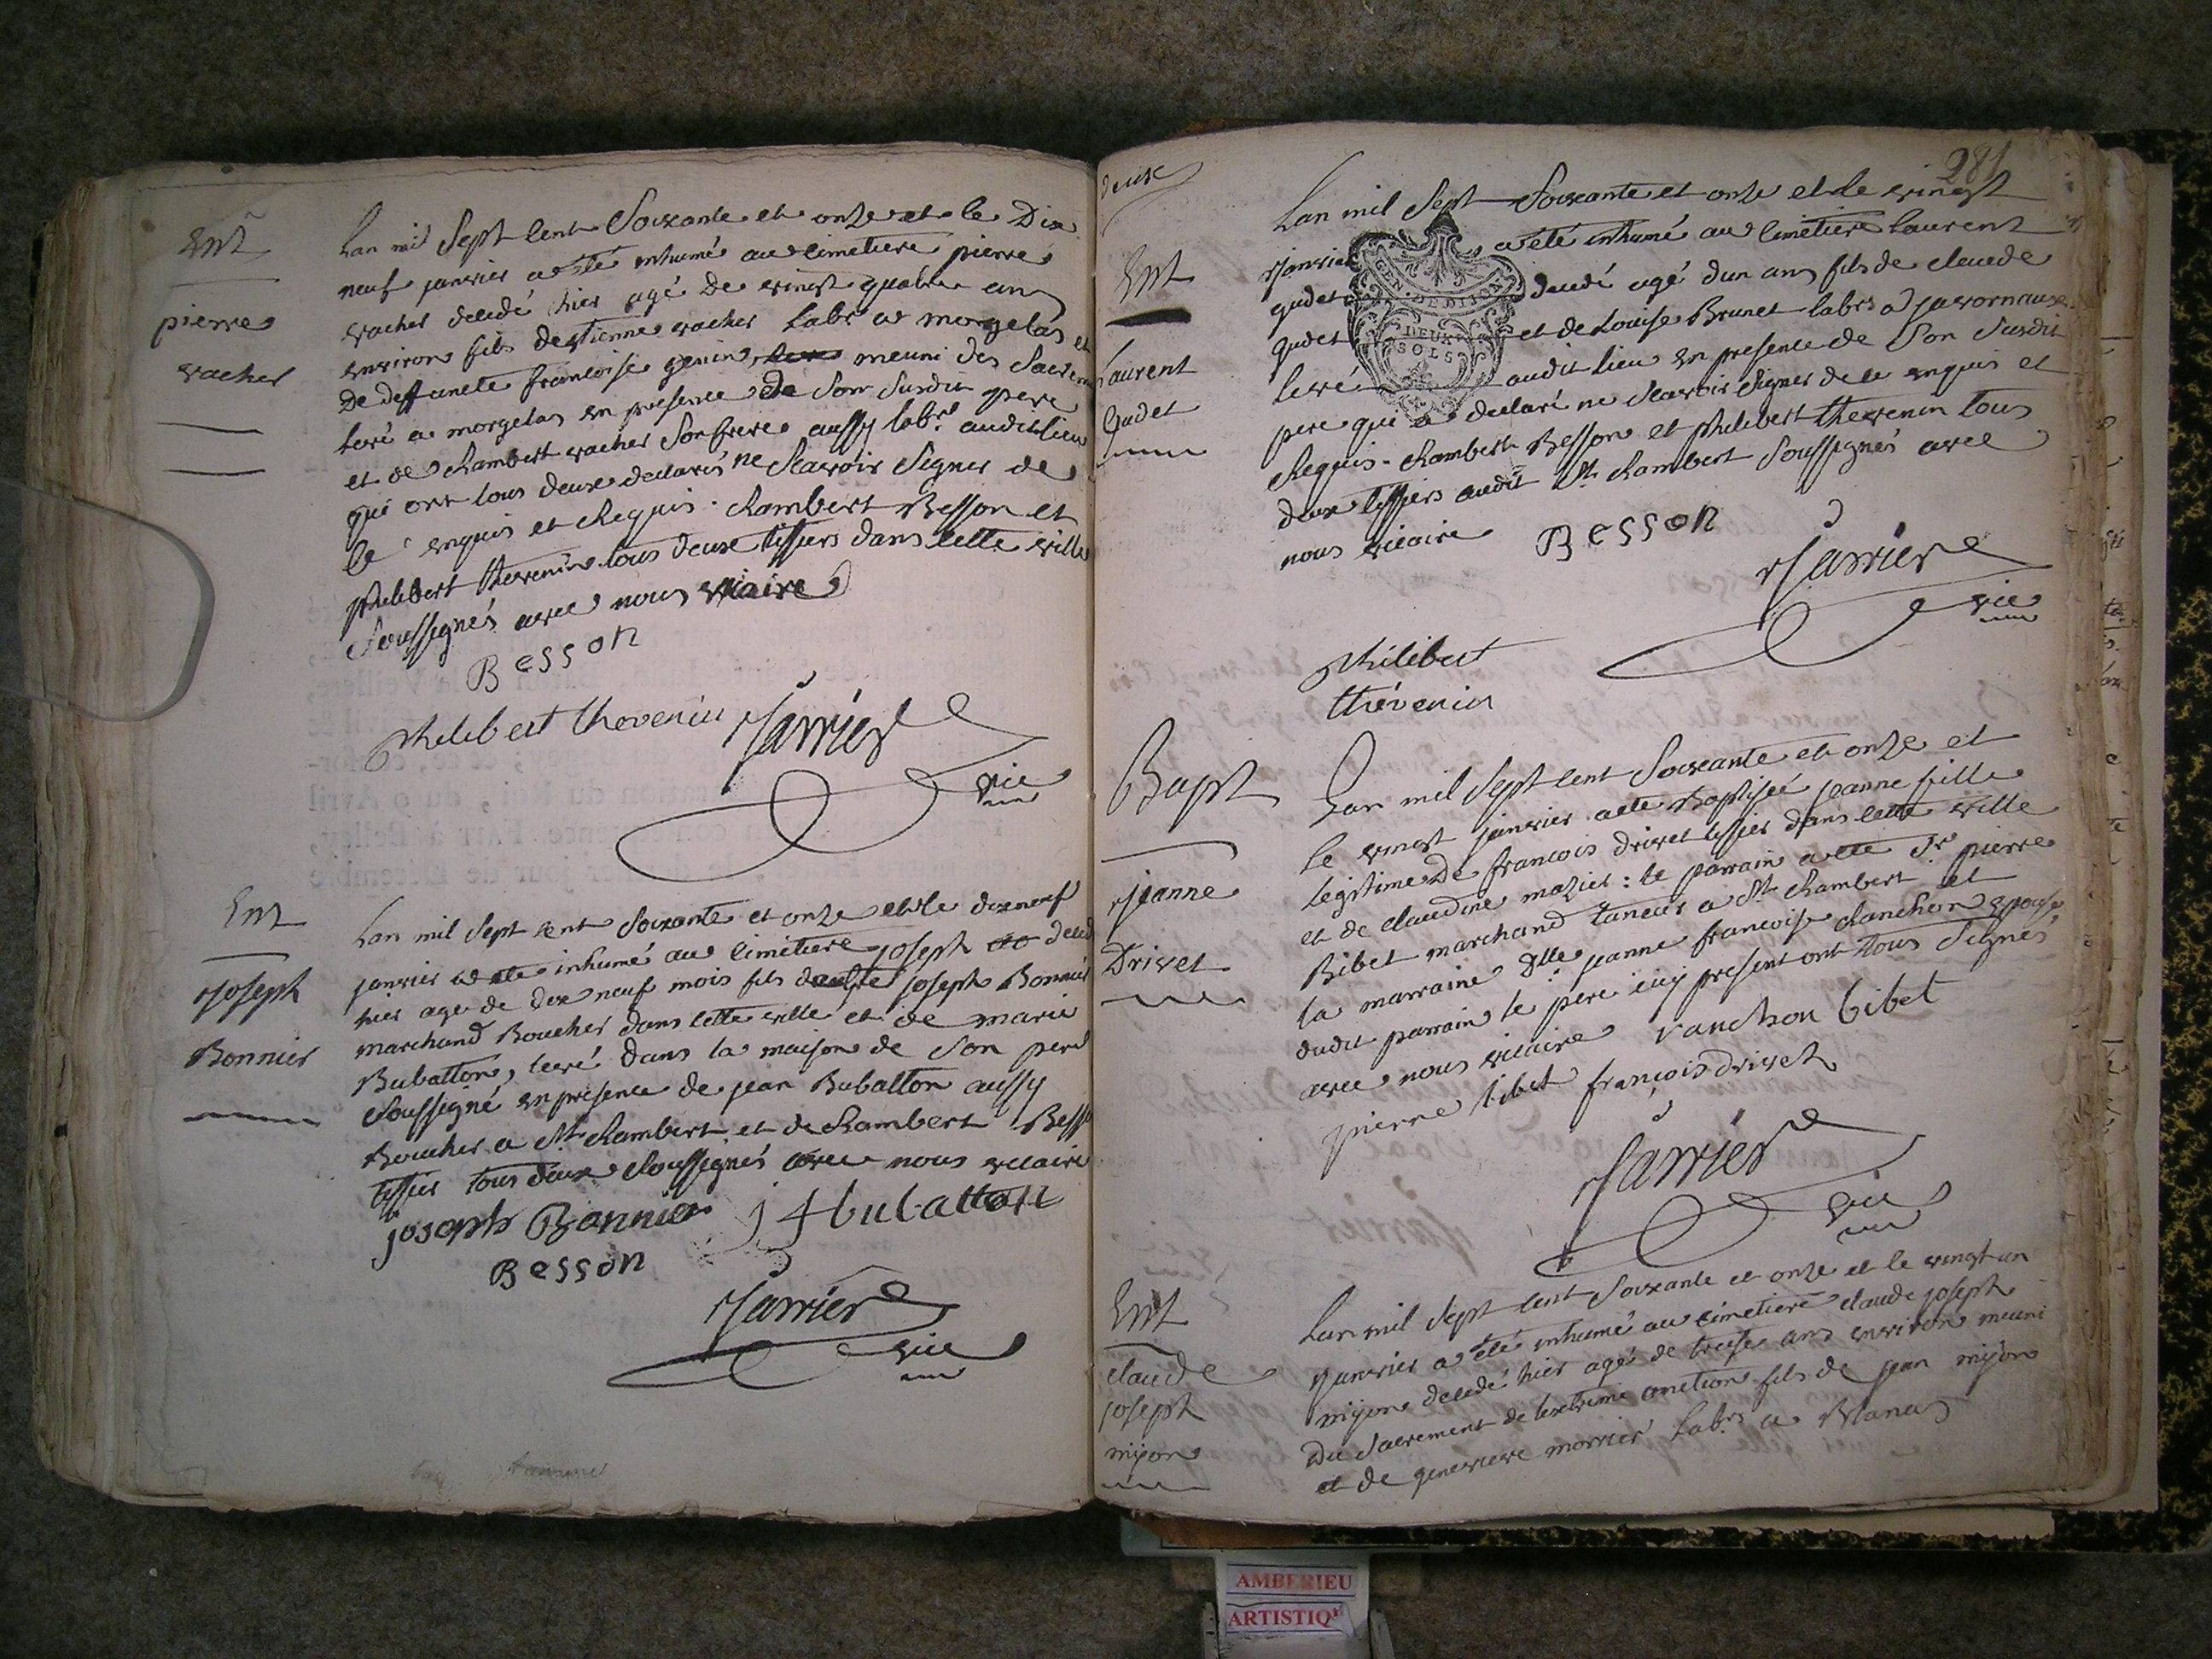 Ent
pierre
vacher
Lan mil Sept Cent Soixante et onze et le Dix
neuf janvier a été inhumé au cimetiere pierre
vacher decedé hier agé De vingt quatre ans
environ fils destienne vacher Labr a morgelas et
De deffuncte francoise genin, muni des Sacrem
levé a morgelas en presence De Son Susdit pere
et de chambert vacher Son frere aussy labr. audit lieu
qui ont tous deux declarés ne Scavoir Signer de
ce enquis et Requis. chambert Besson et
philibert thevenin tous deux tissiers dans cette ville
Soussignés avec nous vicaire
Besson
philibert thevenin
Jarrier
vic
Ent
joseph
Bonnier
Lan mil Sept cent Soixante et onze et le dix neuf
janvier a ete inhumé au cimetiere joseph deced
hier age de dix neuf mois fils de joseph Bonnier
marchand Boucher dans cette ville et de marie
Bubatton, levé dans la maison de Son pere
Soussigné en presence de jean Bubatton aussy
Boucher a St. Rambert et de Rambert Besso
tissier tous deux Soussignés avec nous vicaire
joseph Bonnier
bubatton
Besson
Jarrier
vic
deux
281
Ent
Laurent
Gudet
Lan mil Sept Soixante et onze et le vingt
janvier a été inhumé au cimetiere laurent
gudet decedé agé dun ans fils de claude
Gudet et de Louise Brunet labrs a javornaux
levé audit lieu en presence de Son Susdit
pere qui a declaré ne Scavoir Signer de ce enquis et
Requis. chambert Besson et philibert thevenin tous
deux tissiers audit St. Rambert Soussignés avec
nous vicaire
GEN. DE DIJON
DEUX
SOLS
Besson
Jarrier
vic
philibert
thévenin
Bapt
jeanne
Drivet
Lan mil Sept cent Soixante et onze et
le vingt janvier a ete Baptisée jeanne fille
legitime De francois drivet tissier dans cette ville
et de claudine mazier: le parrain a ete Sr pierre
Bibet marchand taneur a St. Rambert et
la marraine Dlle jeanne francoise Ranchon epouse
dudit parrain le pere icy present ont tous Signés
avec nous vicaire
Ranchon bibet
pierre bibet françois drivet
Jarrier
vic
Ent
claude
joseph
nijon
Lan mil Sept Cent Soixante et onze et le vingt un
janvier a été inhumé au cimetiere claude joseph
nijon decedé hier agé de treise ans environ muni
Du Sacrement de lextreme onction fils de jean nijon
et de genevieve morrier Labrs a Blanas
AMBERIEU
ARTISTIQ